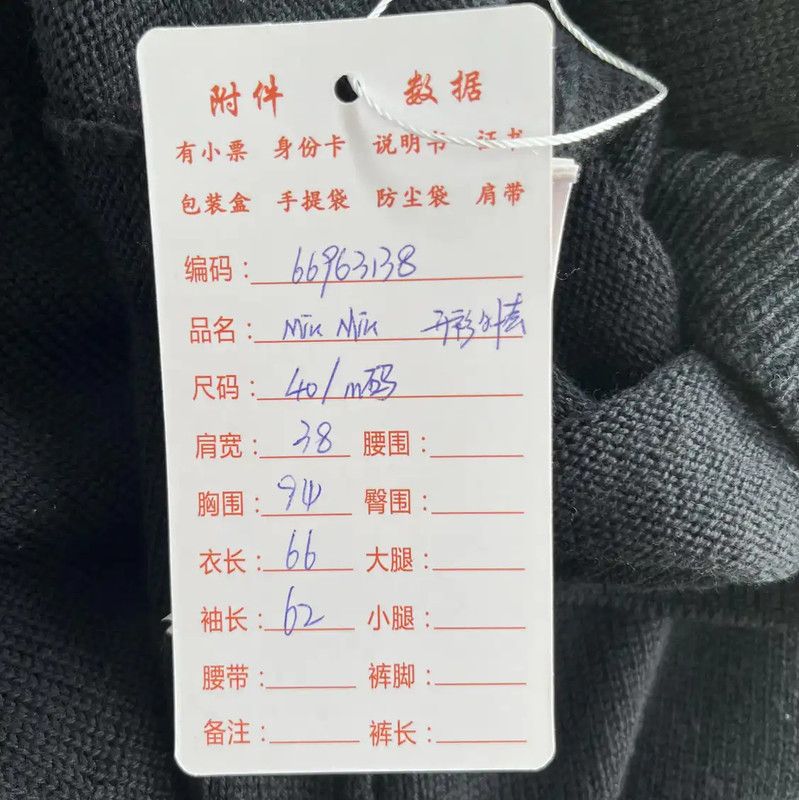 附件 数据
有小票 身份卡 说明书 证书
包装盒 手提袋 防尘袋 肩带
编码：66963138
品名：外套
尺码：40/m码
肩宽：38 腰围：
胸围：94 臀围：
衣长：66 大腿：
袖长：62 小腿：
腰带： 裤脚：
备注： 裤长：